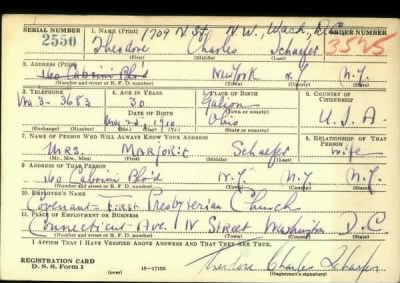 SERIAL NUMBER 1. NAME (Print) 1709 N St. N.W., Wash, D.C. ORDER NUMBER
2550 Theodore Charles Schaefer 3525
(First) (Middle) (Last)
2. ADDRESS (Print)
160 Cabrini Blvd New York N.Y. N.Y.
(Number and street or R. F. D. number) (Town) (County) (State)
3. TELEPHONE 4. AGE IN YEARS 5. PLACE OF BIRTH 6. COUNTRY OF CITIZENSHIP
3-3683 30 Galion
DATE OF BIRTH (Town or county)
1910 Ohio U.S.A.
(Exchange) (Number) (Mo.) (Day) (Yr.) (State or country)
7. NAME OF PERSON WHO WILL ALWAYS KNOW YOUR ADDRESS 8. RELATIONSHIP OF THAT PERSON
Mrs. Marjorie Schaefer Wife
(Mr., Mrs., Miss) (First) (Middle) (Last)
9. ADDRESS OF THAT PERSON
160 Cabrini Blvd N.Y. N.Y. N.Y.
(Number and street or R. F. D. number) (Town) (County) (State)
10. EMPLOYER'S NAME
Covenant-First Presbyterian Church
11. PLACE OF EMPLOYMENT OR BUSINESS
Connecticut Ave. N Street Washington D.C
(Number and street or R. F. D. number) (Town) (County) (State)
I AFFIRM THAT I HAVE VERIFIED ABOVE ANSWERS AND THAT THEY ARE TRUE.
REGISTRATION CARD
D. S. S. Form 1 (over) 16-17105 Theodore Charles Schaefer
(Registrant's signature)